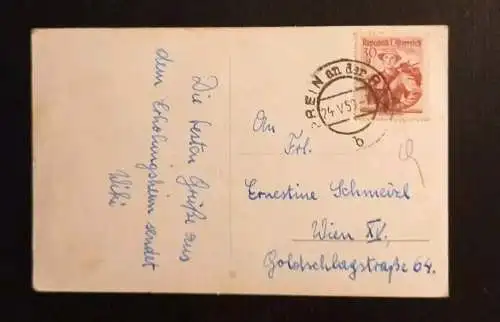 Die besten Grüße aus
dem Erholungsheim sendet
Wiki
Republik Österreich
30
an der
24.V.5
b
An
Frl.
Ernestine Schmeizl
Wien XV.
Goldschlagstraße 64.